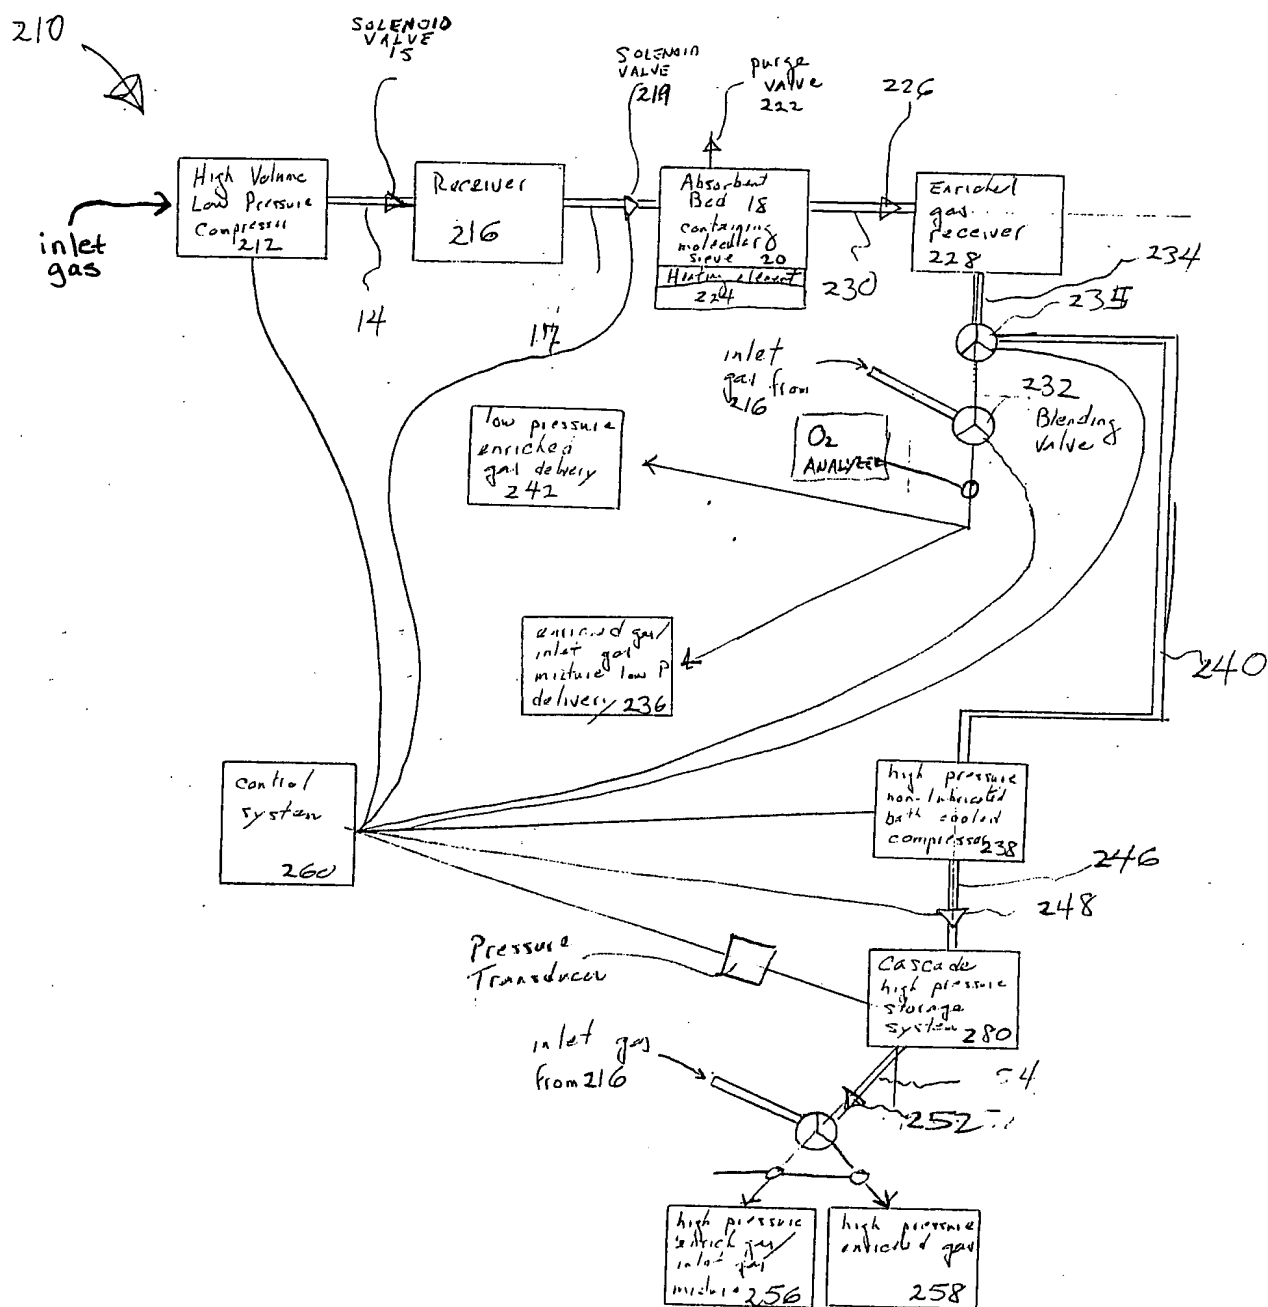 210
SOLENOID
VALVE
15
SOLENOID
VALVE
219
purge
valve
222
226
High Volume
Low Pressure
Compressor
212
Receiver
216
Absorbent
Bed 18
containing
molecular
sieve 20
Heating element
224
Enriched
gas
receiver
228
inlet
gas
14
17
230
234
235
inlet
gas from
216
232
Blending
valve
O2
ANALYZER
low pressure
enriched
gas delivery
242
enriched gas/
inlet gas
mixture low P
delivery 236
240
control
system
260
high pressure
non-lubricated
bath cooled
compressor 238
246
248
Pressure
Transducer
Cascade
high pressure
storage
system 280
inlet gas
from 216
54
252
high pressure
enrich gas/
inlet gas
mixture 256
high pressure
enriched gas
258